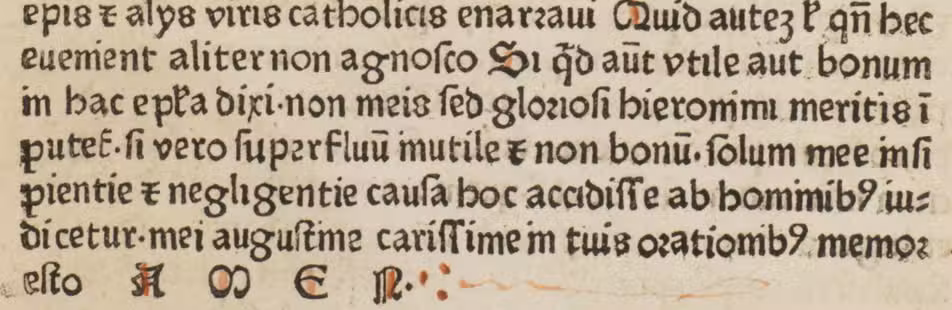 epis ⁊ alijs viris catholicis enarraui Quid autez ł qn̄ hec
euenient aliter non agnosco Si q̄d aūt vtile aut bonum
in hac epła dixi·non meis sed gloriosi hieronimi meritis ī
putet᷑·si vero superfluū inutile ⁊ non bonū·solum mee insi
pientie ⁊ negligentie causa hoc accidisse ab hominibꝰ iu⸗
dicetur·mei augustine carissime in tuis orationibꝰ memor
esto A M E N·